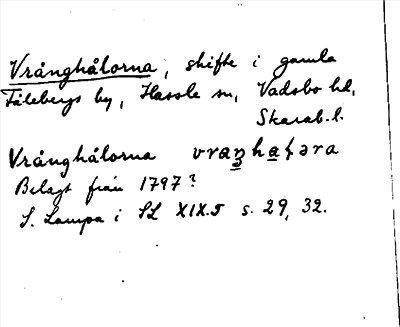 Vrånghålorna, skifte i gamla
Fålebergs by, Hassle sn, Vadsbo hd,
Skarab. l.
Vrånghålorna vraŋhaɫəra
Belagt från 1797?
S. Lampa i SL XIX.5 s. 29, 32.